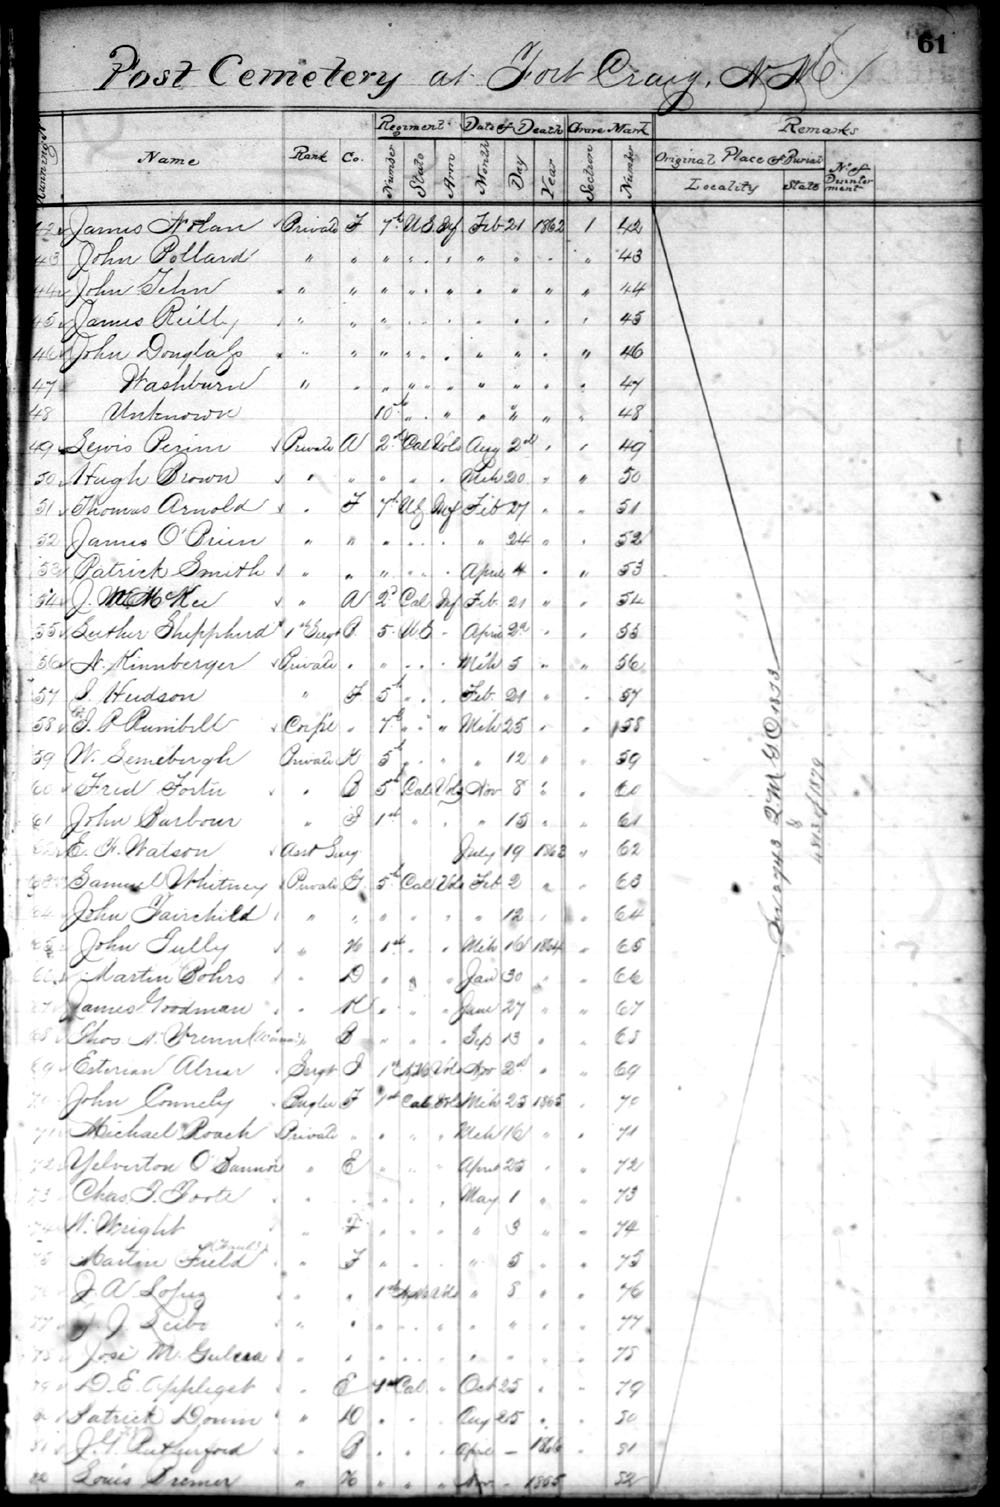 61
Post Cemetery at Fort Craig, N.M.
Regiment Date of Death Grave Mark Remarks
Name Rank Co. Number State Arm Month Day Year Section Number Original Place of Burial No of Disinterment
Locality State
42 James Nolan Private F 7th U.S. Inf Feb 21 1862 1 42
43 John Pollard " " " " " " " " " " 43
44 John " " " " " " " " " " 44
45 James Reilly " " " " " " " " " " 45
46 John Douglass " " " " " " " " " " 46
47 Washburn " " " " " " " " " " 47
48 Unknown 10th " " " " " " 48
49 Lewis Perim Private A 2nd Cal Vols Aug 2nd " " 49
50 Hugh Brown " " " " " Mch 20 " " 50
51 Thomas Arnold " F 7th US Inf Feb 27 " " 51
52 James O'Brien " " " " " " 24 " " 52
53 Patrick Smith " " " " " April 4 " " 53
54 J. McKee " A 2d Cal Inf Feb. 21 " " 54
55 Luther Shepphird 1st Sergt B. 5 U S " April 2d " " 55
56 N. Kinnberger Private " " " " Mch 5 " " 56
57 S. Hudson " F 5th " " Feb. 21 " " 57
58 J. P. Rumbell Corp'l " 7th " " Mch 25 " " 58
59 W. Semebergh Private K 5th " " " 12 " " 59
60 Fred " B 5th Cal Vols Nov 8 " " 60
61 John Barbour " I 1st " " " 15 " " 61
62 E. F. Watson Asst Surg July 19 1863 " 62
63 Samuel Whitney Private G. 5th Cal Vols Feb 2 " " 63
64 John Fairchild " " " " " " 12 " " 64
65 John Tully " H 1st " " Mch 16 1864 " 65
66 Martin Bohrs " D " " " Jan 30 " " 66
67 James Goodman " K " " " June 27 " " 67
68 Thos N. Wrenn B " " " Sep 13 " " 68
69 Esterian Sergt I 1st N.M. Vols Nov 2nd " " 69
70 John Connely Bugler F 1st Cal Vols Mch 25 1865 " 70
71 Michael Roach Private " " " " Mch 16 " " 71
72 Yelverton O'Bannon " E " " " April 25 " " 72
73 Chas. J. Foote " " " " " May 1 " " 73
74 W. Wright " F " " " " 3 " " 74
75 Martin Field " F " " " " 5 " " 75
76 J A Lopez " " 1st " 8 " " 76
77 J " " " " " " " " " 77
78 Jose M. " " " " " " " " " 78
79 D. E. Appleget " E 1st Cal " Oct 25 " " 79
80 Patrick " D " " " Aug 25 " " 80
81 J. Rutherford " B " " " April – 1866 " 81
82 Louis Bremer " H " " " Nov – 1865 " 82
4843 of 1879